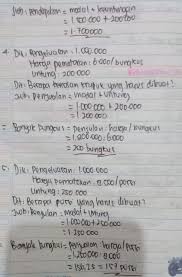 Jwb: pendapatan = modal + keuntungan
= 1.500.000 + 200.000
= 1.700.000
4. Dik: Pengeluaran = 1.000.000
Harga pemasaran: 6.000/bungkus
Untung: 200.000
Dit: Berapa kerupuk yang harus dibuat?
Jwb: Penjualan = modal + untung
= 1.000.000 + 200.000
= 1.200.000
= Banyak bungkus = penjualan : harga/bungkus
= 1.200.000 : 6.000
= 200 bungkus
5. Dik: Pengeluaran: 1.000.000
Harga pemasaran: 8.000/porsi
Untung: 250.000
Dit: Berapa porsi yang harus dibuat?
Jwb: Penjualan = modal + untung
= 1.000.000 + 250.000
= 1.250.000
Banyak bungkus = penjualan : harga/porsi
= 1.250.000 : 8.000
= 156,25 = 157 porsi